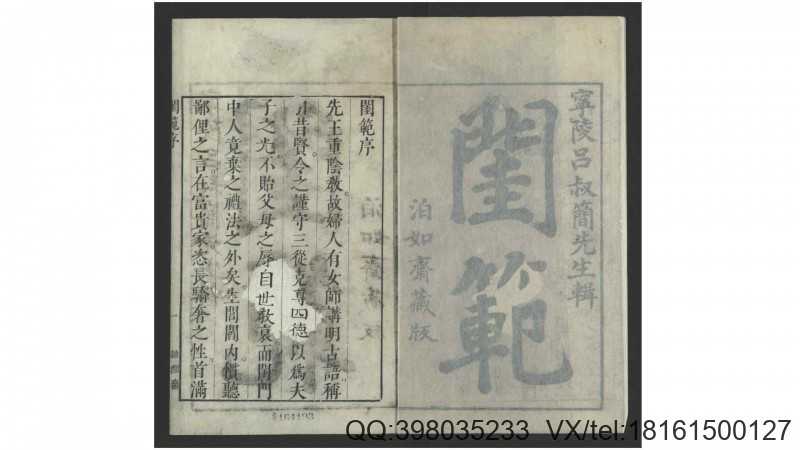 寧陵呂叔簡先生輯
閨範
泊如齋藏版
閨範序
先王重陰教故婦人有女師講明古語稱
引昔賢令之謹守三從克尊四德以爲夫
子之光不貽父母之辱自世教衰而閨門
中人竟棄之禮法之外矣生閭閻內慣聽
鄙俚之言在富貴家恣長驕奢之性首滿
閨範序
一
QQ:398035233 VX/tel:18161500127